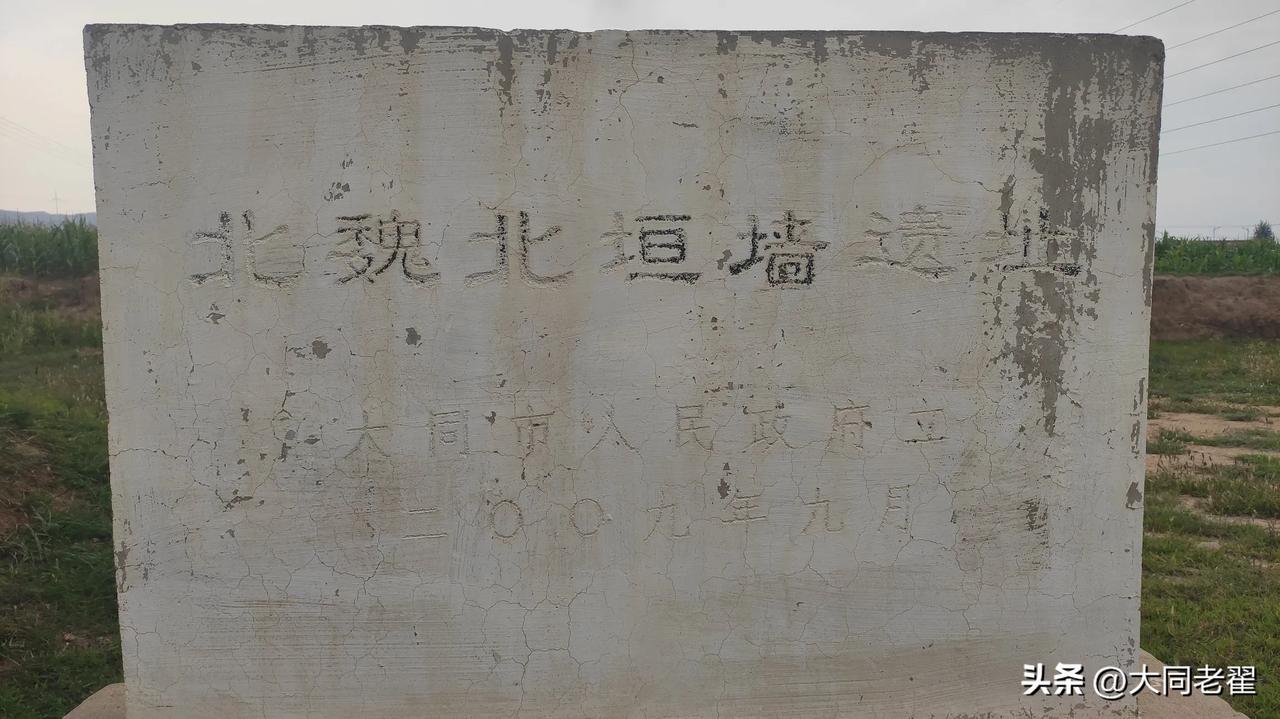 北魏北垣墙遗址
大同市人民政府立
二〇〇九年九月
头条 @大同老翟